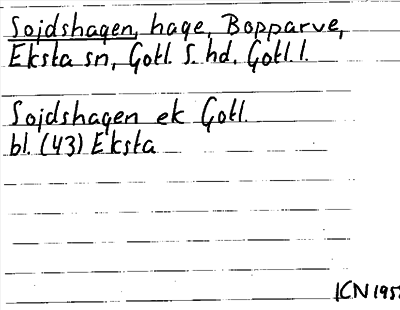 Sojdshagen, hage, Bopparve,
Eksta sn, Gotl. S. hd. Gotl. l.
Sojdshagen ek Gotl.
bl. (43) Eksta
ICN 195